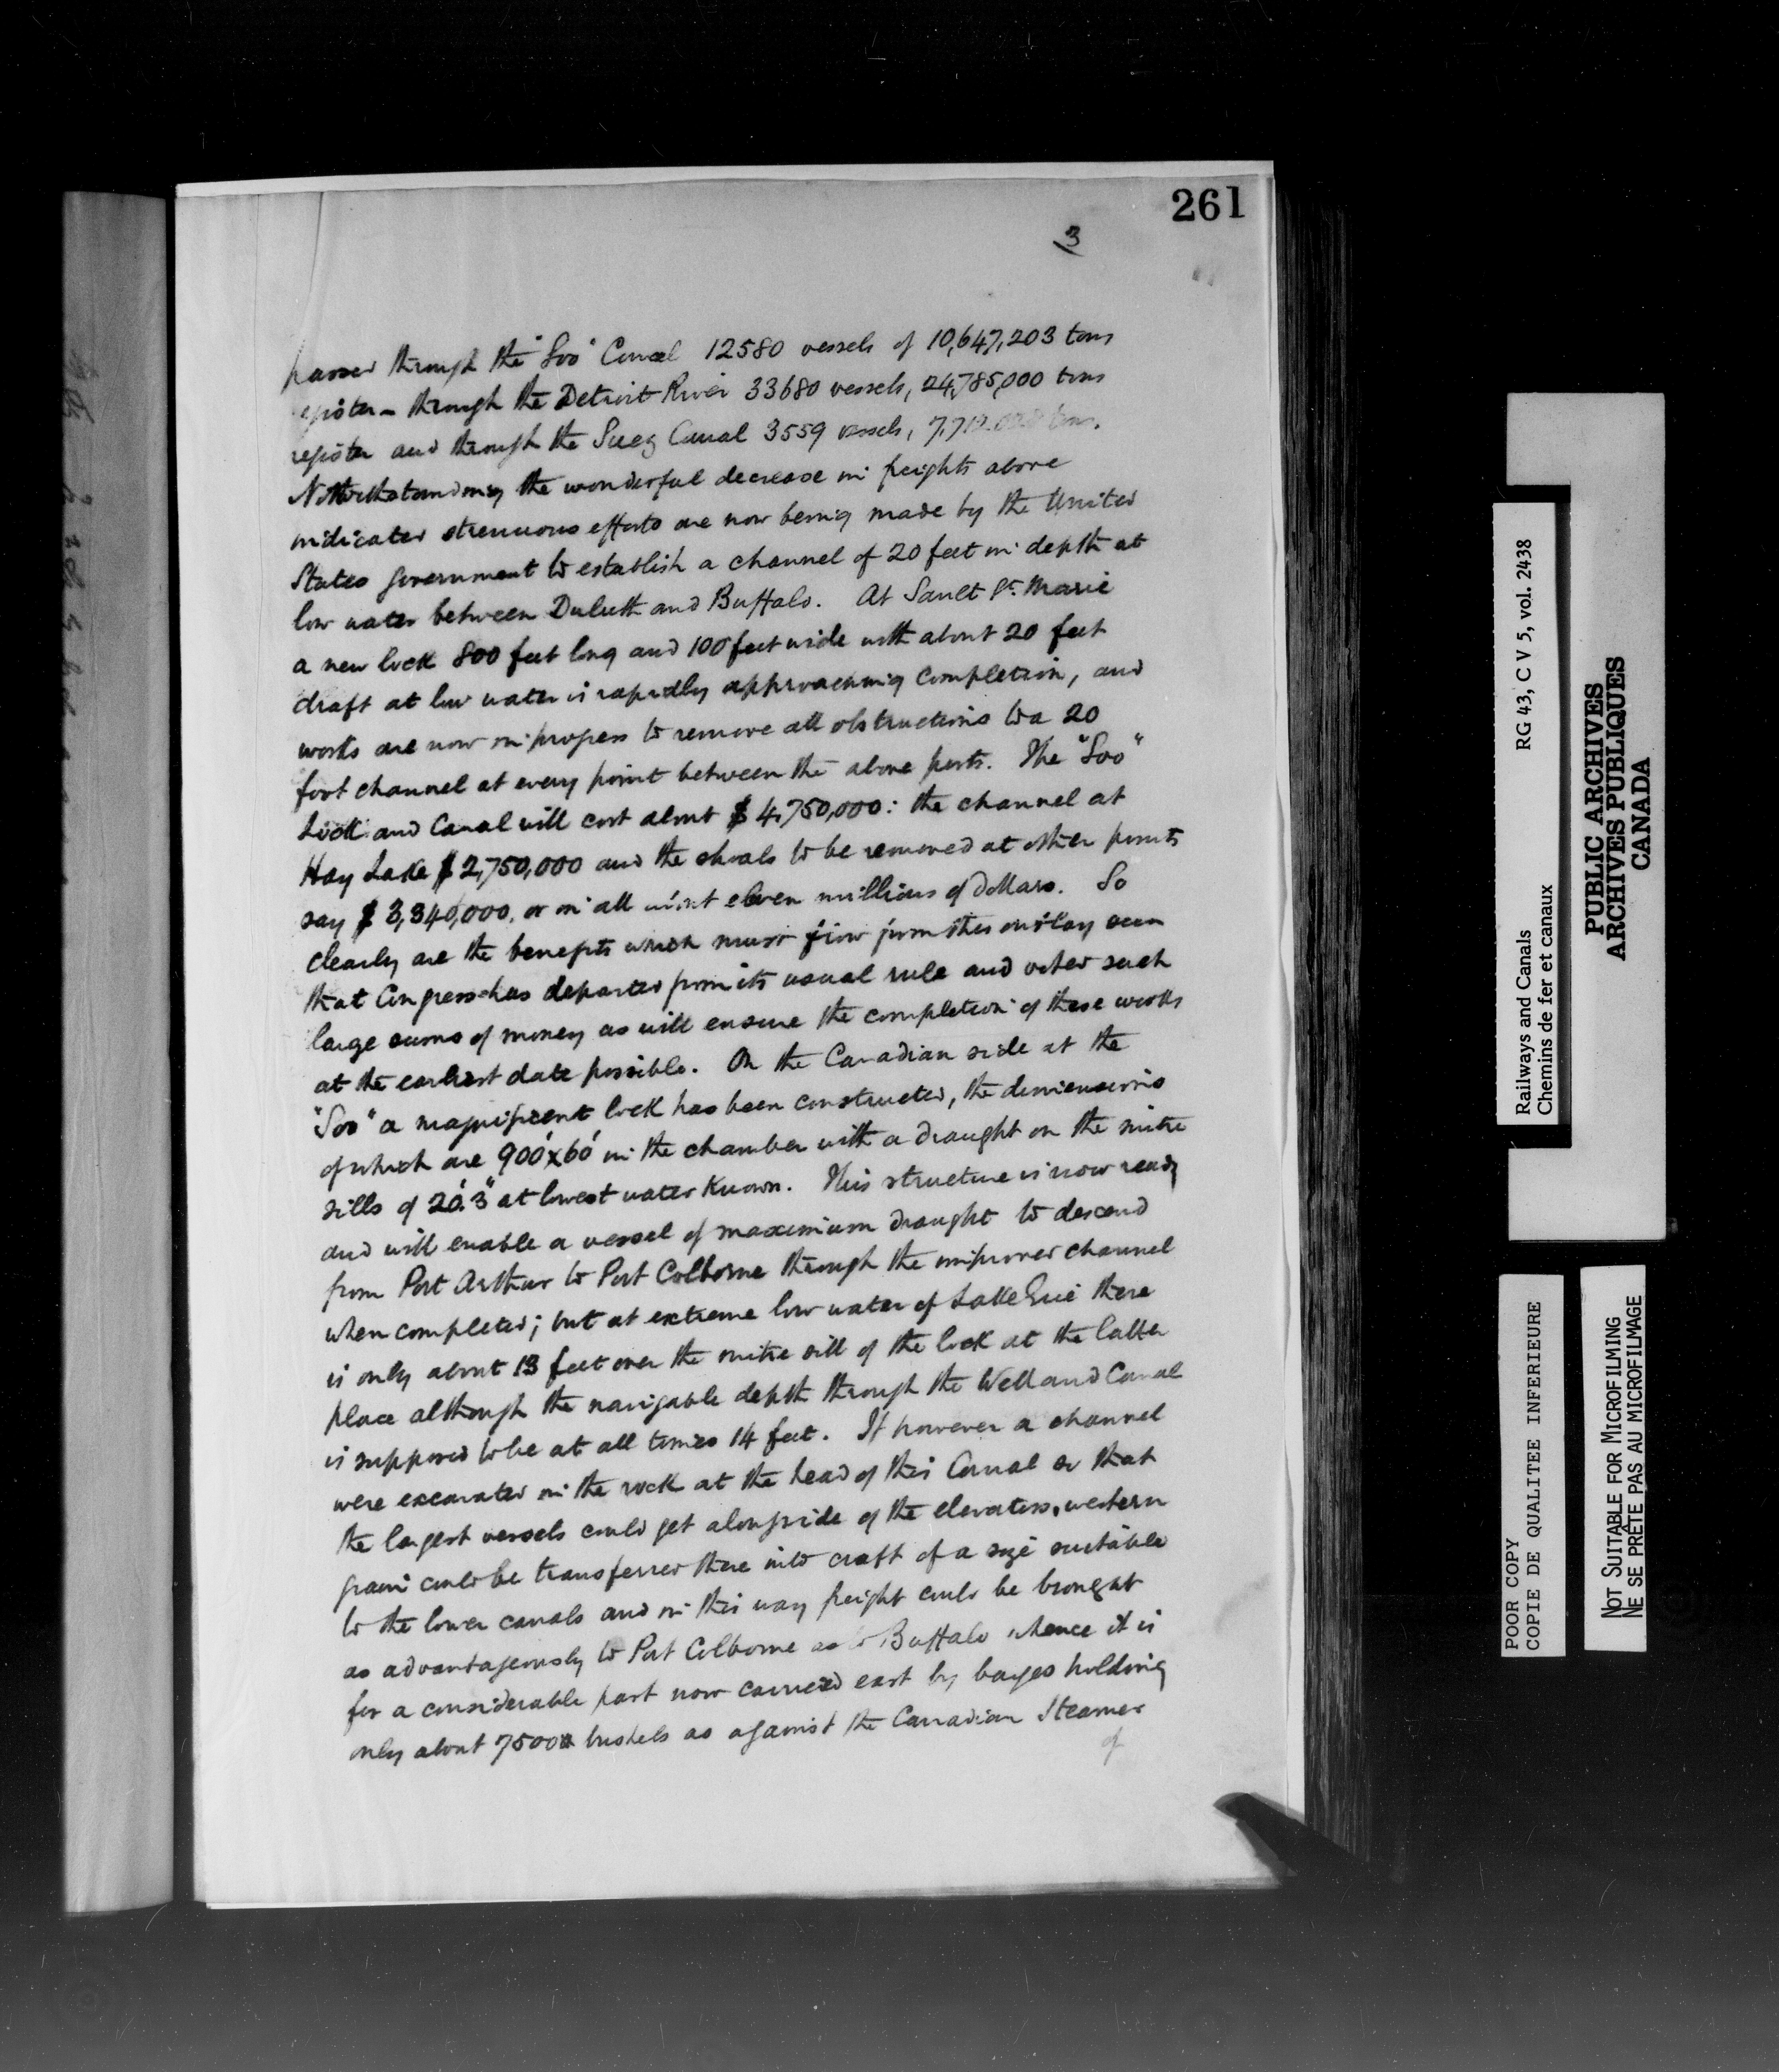 261
3
passed through the "Soo" Canal 12580 vessels of 10,647,203 tons
register - through the Detroit River 33680 vessels, 24,785,000 tons
register and through the Suez Canal 3559 vessels, 7,712,000 tons.
Notwithstanding the wonderful decrease in freights above
indicated strenuous efforts are now being made by the United
States government to establish a channel of 20 feet in depth at
low water between Duluth and Buffalo. At Sault Ste. Marie
a new lock 800 feet long and 100 feet wide with about 20 feet
draft at low water is rapidly approaching completion, and
works are now in progress to remove all obstructions to a 20
foot channel at every point between the above ports. The "Soo"
Lock and Canal will cost about $4,750,000: the channel at
Hay Lake $2,750,000 and the shoals to be removed at other points
say $3,340,000, or in all about eleven millions of dollars. So
clearly are the benefits which must flow from this outlay seen
that Congress has departed from its usual rule and voted such
large sums of money as will ensure the completion of these works
at the earliest date possible. On the Canadian side at the
"Soo" a magnificent lock has been constructed, the dimensions
of which are 900'x60' in the chamber with a draught on the mitre
sills of 20'.3" at lowest water known. This structure is now ready
and will enable a vessel of maximum draught to descend
from Port Arthur to Port Colborne through the improved channel
when completed; but at extreme low water of Lake Erie there
is only about 13 feet over the mitre sill of the lock at the latter
place although the navigable depth through the Welland Canal
is supposed to be at all times 14 feet. If however a channel
were excavated in the rock at the head of this Canal so that
the largest vessels could get alongside of the elevators, western
grain could be transferred there into craft of a size suitable
to the lower canals and in this way freight could be brought
as advantageously to Port Colborne as to Buffalo whence it is
for a considerable part now carried east by barges holding
only about 7500 bushels as against the Canadian Steamer
of
Railways and Canals RG 43, C V 5, vol. 2438
Chemins de fer et canaux
PUBLIC ARCHIVES
ARCHIVES PUBLIQUES
CANADA
POOR COPY
COPIE DE QUALITEE INFERIEURE
NOT SUITABLE FOR MICROFILMING
NE SE PRÊTE PAS AU MICROFILMAGE